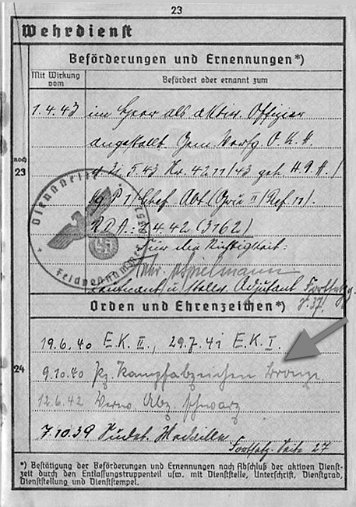 23
Wehrdienst
Beförderungen und Ernennungen*)
Mit Wirkung vom
Befördert oder ernannt zum
1.4.43 im Heer als aktiv. Offizier
angestellt. Gem. Verfg O.K.H.
noch
23
5.43 Nr. 4211/43 geh. H.P.A./
Ag P 1/ Chef Abt.
R.D.A.: 4.42 (3762)
Für die Richtigkeit:
Leutnant u. stellv. Adjutant
Fortsetzg
S. 37.
Dienststelle
Feldpostnummer
Orden und Ehrenzeichen*)
19.6.40 E.K. II., 29.7.41 E.K. I.
24
9.10.40 Pz. Kampfabzeichen Bronze
12.6.42 Verw. Abz. schwarz
7.10.39 Sudet. Medaille
Fortsetz. Seite 27
*) Bestätigung der Beförderungen und Ernennungen nach Abschluß der aktiven Dienst-
zeit durch den Entlassungstruppenteil usw. mit Dienststelle, Unterschrift, Dienstgrad,
Dienststellung und Dienststempel.